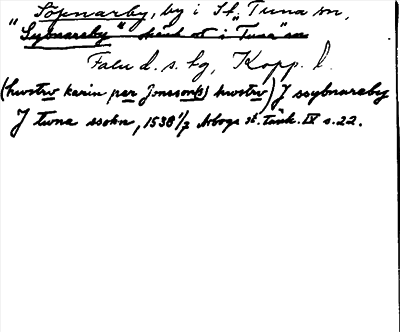 Söpnarby, by i St. Tuna sn,
"Sybnareby" känt ort i Tuna sn
Falu d. s. bg, Kopp. l.
(hwstrv karin per Jonsson(s) hwstrv) J ssybnareby
J twna sokn, 1538 1/7 Arboga st. tänk. IV s. 22.